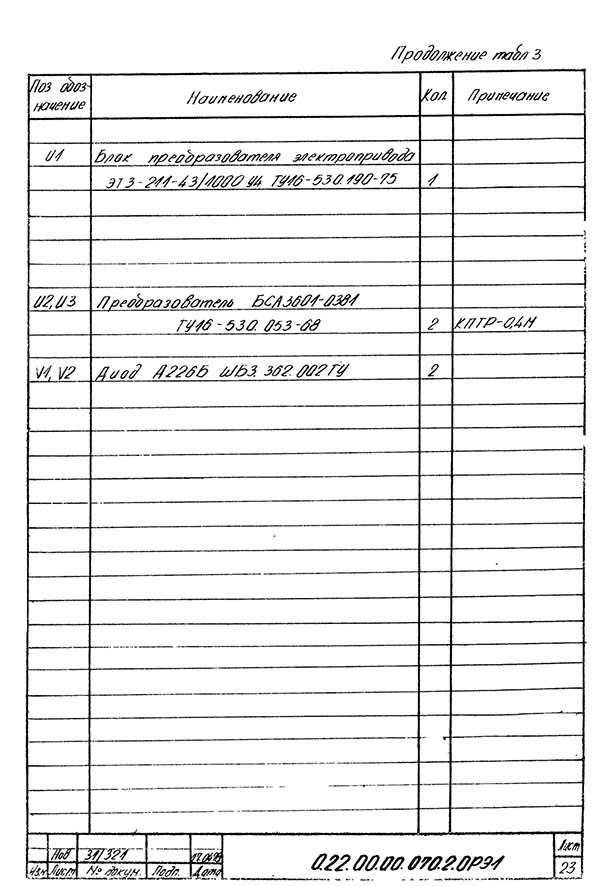 Продолжение табл 3
Поз обоз- Наименование Кол Примечание
начение
U1 Блок преобразователя электропривода
ЭТ3-211-43/1000 У4 ТУ16-530.190-75 1
U2, U3 Преобразователь БСА3601-0381
ТУ16-530.053-68 2 КПТР-0,4Н
V1, V2 Диод А226Б ЩБ3.362.002ТУ 2
Нов 31/321
0.22.00.00.070.2.0РЭ1
Лист
Изм Лист № докум. Подп. Дата 23